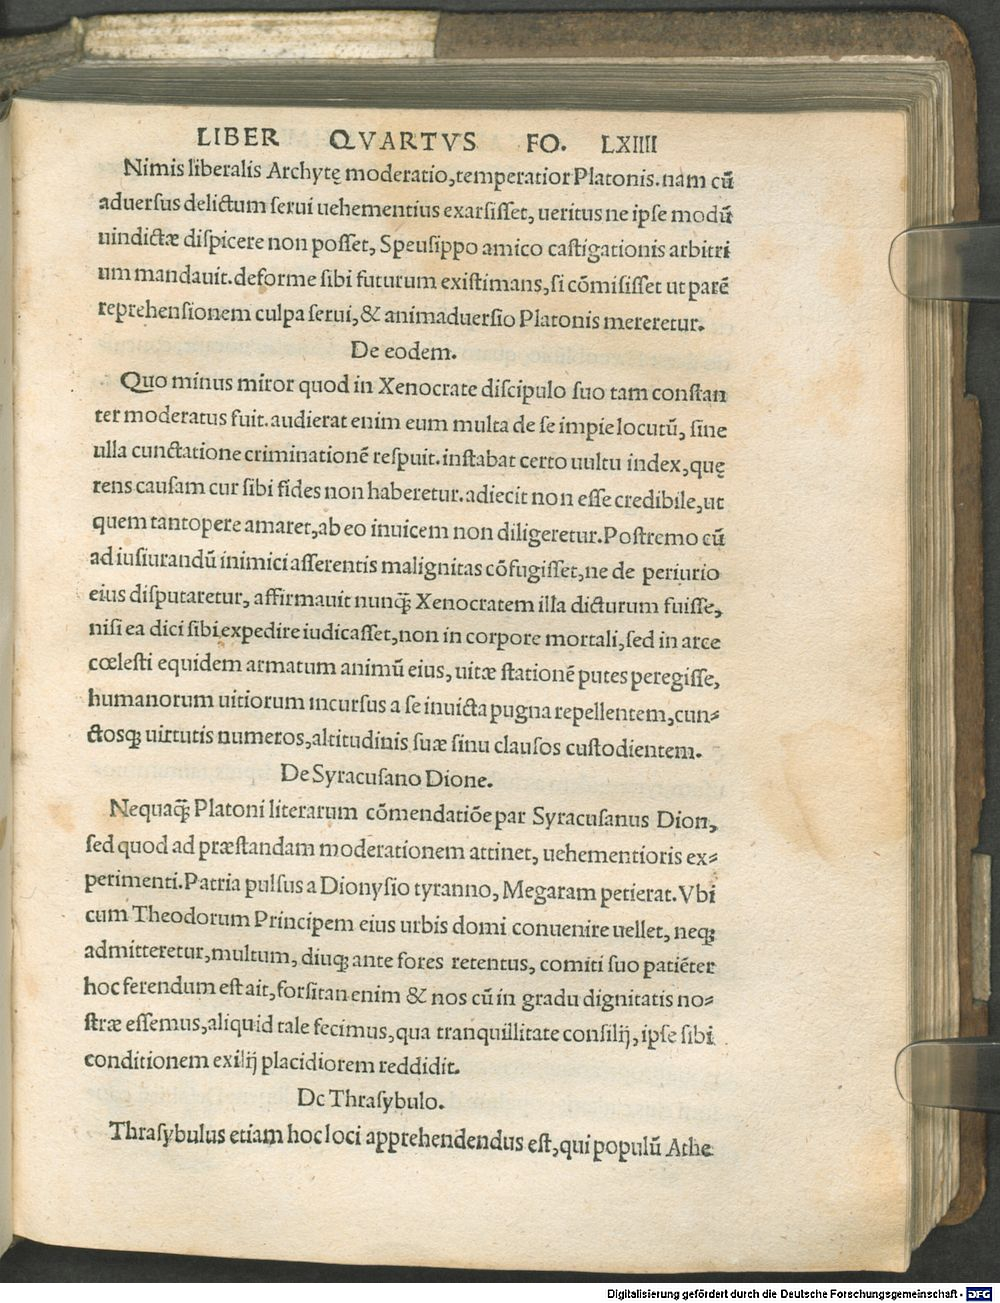 LIBER QVARTVS FO. LXIIII
Nimis liberalis Archytę moderatio, temperatior Platonis. nam cū
aduersus delictum serui uehementius exarsisset, ueritus ne ipse modū
uindictæ dispicere non posset, Speusippo amico castigationis arbitri
um mandauit. deforme sibi futurum existimans, si cōmisisset ut parē
reprehensionem culpa serui, & animaduersio Platonis mereretur.
De eodem.
Quo minus miror quod in Xenocrate discipulo suo tam constan
ter moderatus fuit. audierat enim eum multa de se impie locutū, sine
ulla cunctatione criminationē respuit. instabat certo uultu index, quę
rens causam cur sibi fides non haberetur. adiecit non esse credibile, ut
quem tantopere amaret, ab eo inuicem non diligeretur. Postremo cū
ad iusiurandū inimici asserentis malignitas cōfugisset, ne de periurio
eius disputaretur, affirmauit nunq̃ Xenocratem illa dicturum fuisse,
nisi ea dici sibi expedire iudicasset, non in corpore mortali, sed in arce
cœlesti equidem armatum animū eius, uitæ stationē putes peregisse,
humanorum uitiorum incursus a se inuicta pugna repellentem, cun⸗
ctosq; uirtutis numeros, altitudinis suæ sinu clausos custodientem.
De Syracusano Dione.
Nequaq̃; Platoni literarum cōmendatiōe par Syracusanus Dion,
sed quod ad præstandam moderationem attinet, uehementioris ex⸗
perimenti. Patria pulsus a Dionysio tyranno, Megaram petierat. Vbi
cum Theodorum Principem eius urbis domi conuenire uellet, neq;
admitteretur, multum, diuq; ante fores retentus, comiti suo patiēter
hoc ferendum est ait, forsitan enim & nos cū in gradu dignitatis no⸗
stræ essemus, aliquid tale fecimus, qua tranquillitate consilij, ipse sibi
conditionem exilij placidiorem reddidit.
De Thrasybulo.
Thrasybulus etiam hoc loci apprehendendus est, qui populū Athe
Digitalisierung gefördert durch die Deutsche Forschungsgemeinschaft - DFG